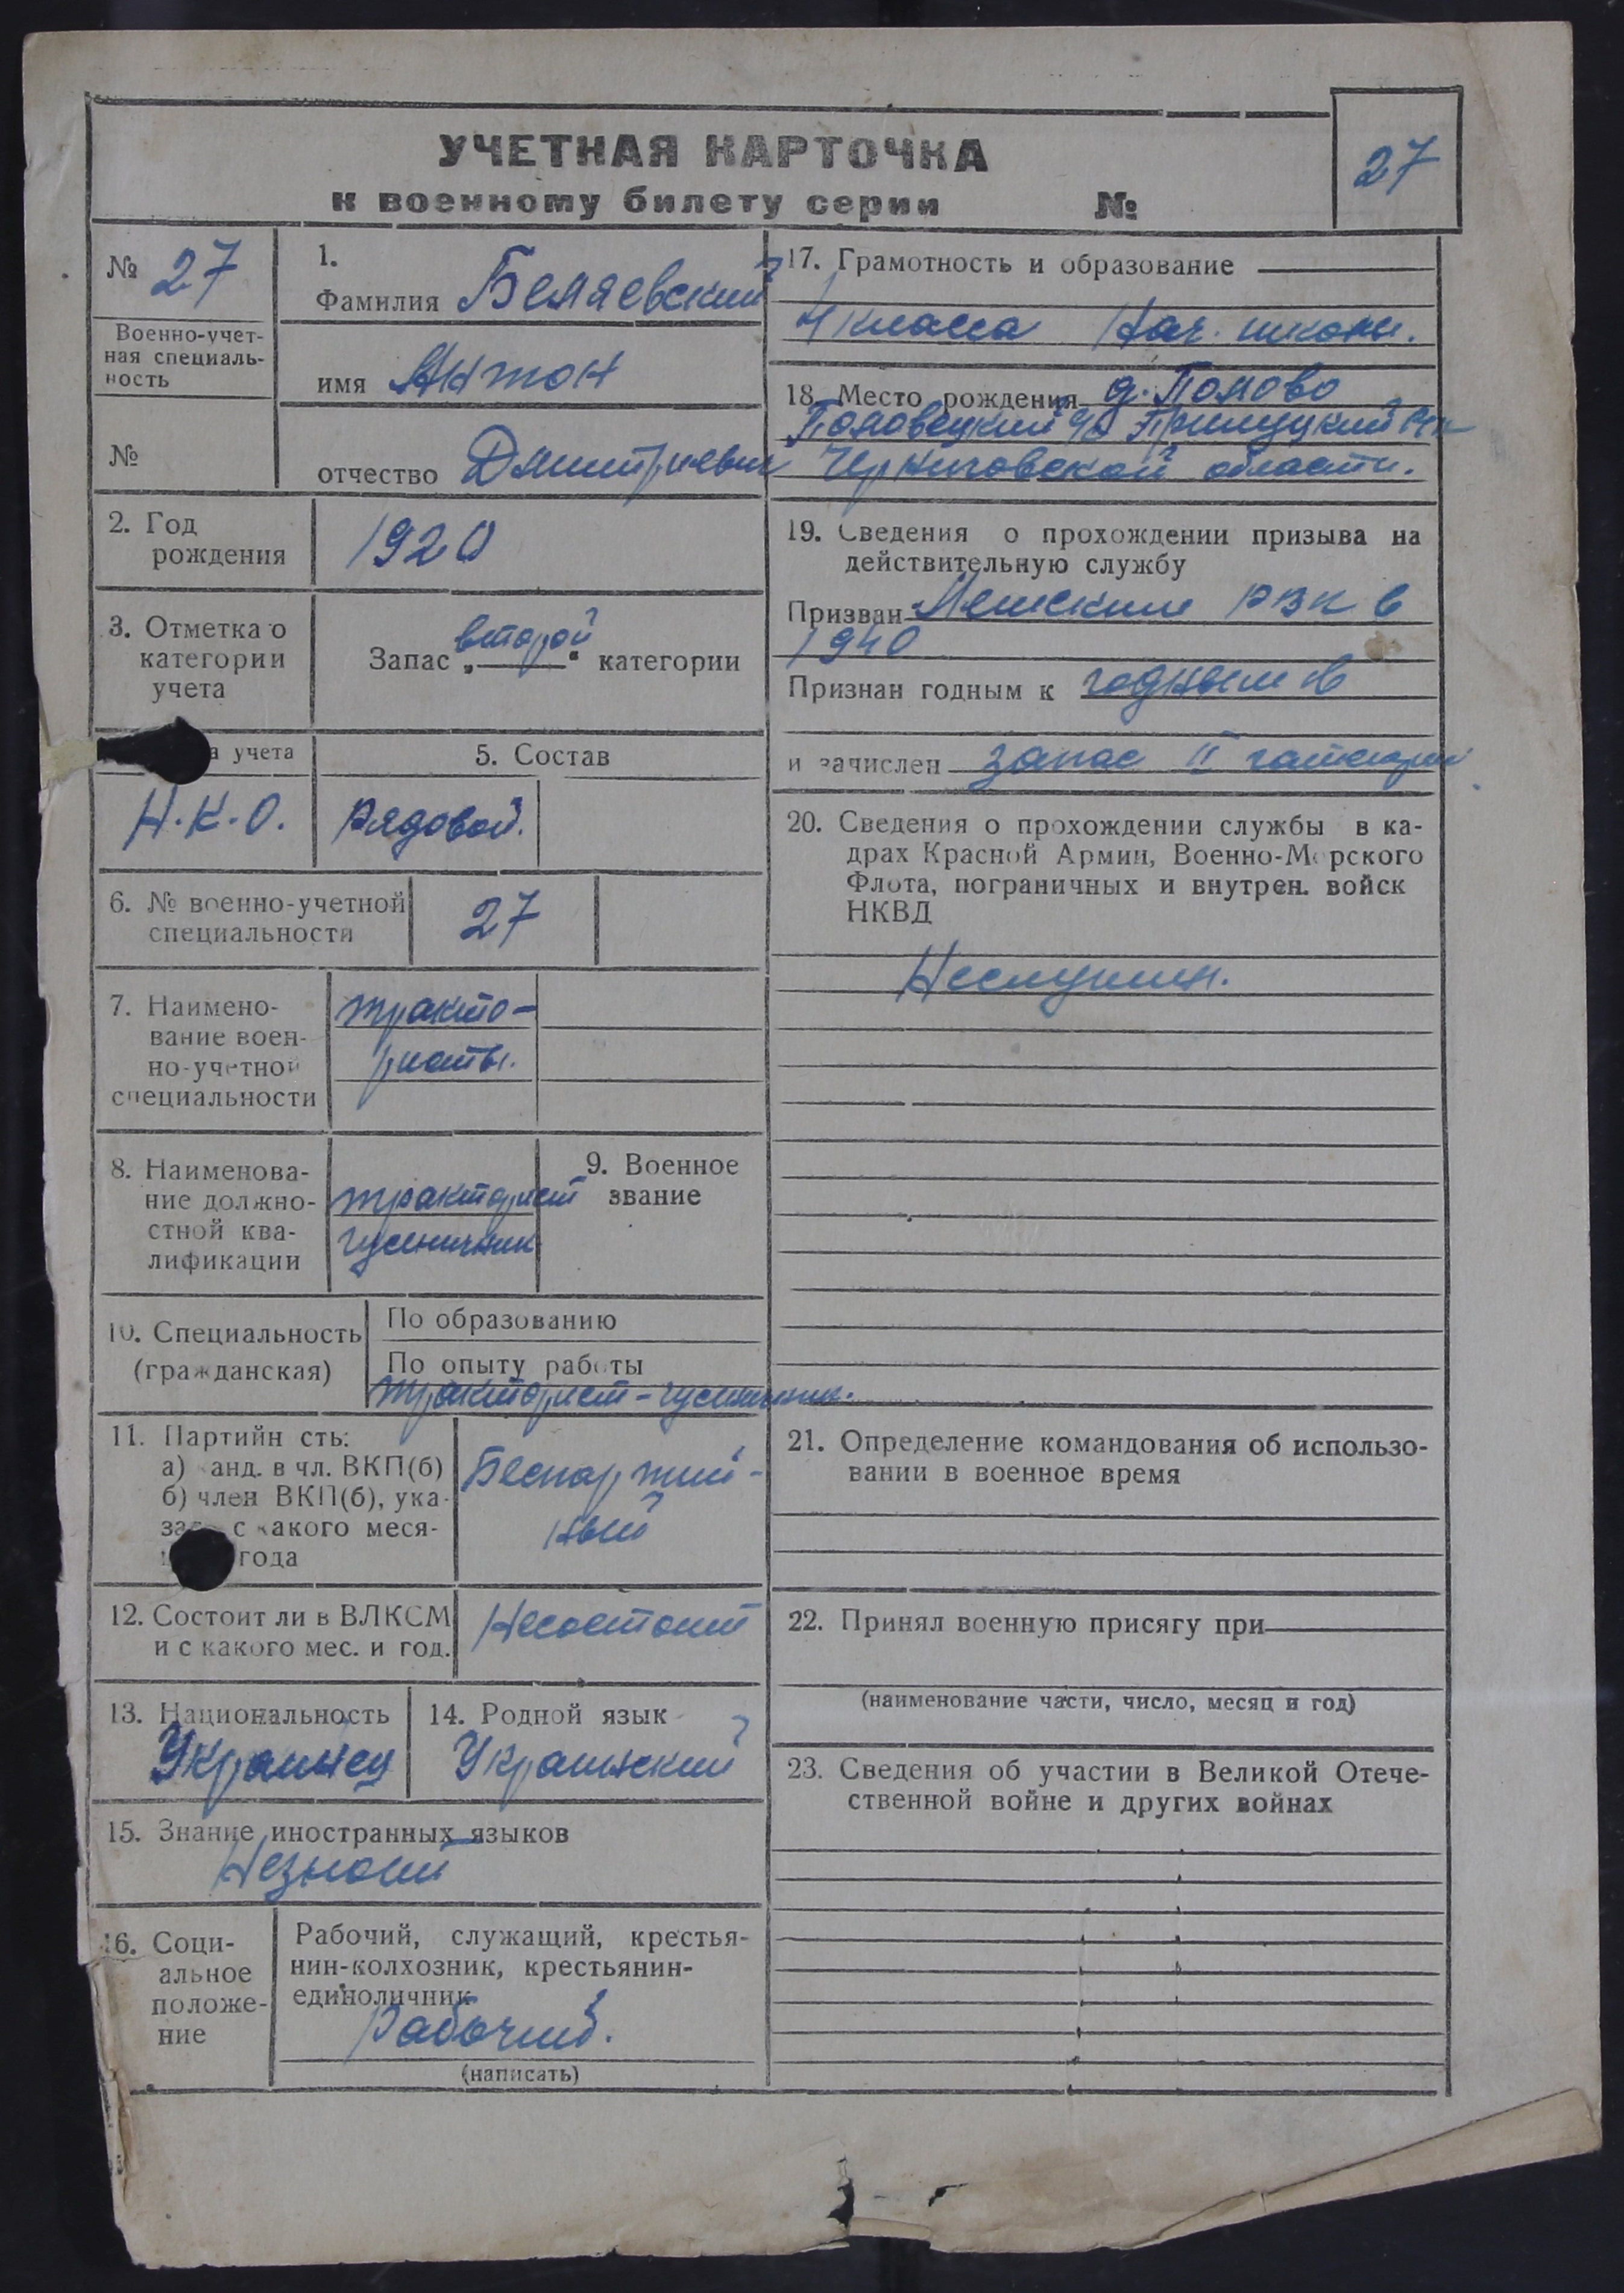 УЧЕТНАЯ КАРТОЧКА
к военному билету серии №
27
№ 27
Военно-учет-
ная специаль-
ность
№
1.
Фамилия Беляевский
имя Антон
отчество Дмитриевич
2. Год
рождения
1920
3. Отметка о
категории
учета
Запас „второй“ категории
учета
Н.К.О.
5. Состав
Рядовой.
6. № военно-учетной
специальности
27
7. Наимено-
вание воен-
но-учетной
специальности
тракто-
ристы.
8. Наименова-
ние должно-
стной ква-
лификации
тракторист
гусеничник
9. Военное
звание
10. Специальность
(гражданская)
По образованию
По опыту работы
тракторист-гусеничник.
11. Партийн сть:
а) канд. в чл. ВКП(б)
б) член ВКП(б), ука-
с какого меся-
года
Беспартий-
ный
12. Состоит ли в ВЛКСМ
и с какого мес. и год.
Несостоит
13. Национальность
Украинец
14. Родной язык
Украинский
15. Знание иностранных языков
Незнает
16. Соци-
альное
положе-
ние
Рабочий, служащий, крестья-
нин-колхозник, крестьянин-
единоличник
Рабочий.
(написать)
17. Грамотность и образование
4 класса Нач. школы.
18. Место рождения д.
Черниговской области.
19. Сведения о прохождении призыва на
действительную службу
Призван РВК в
1940
Признан годным к годным в
и зачислен запас II
20. Сведения о прохождении службы в ка-
драх Красной Армии, Военно-Морского
Флота, пограничных и внутрен. войск
НКВД
Неслужил.
21. Определение командования об использо-
вании в военное время
22. Принял военную присягу при
(наименование части, число, месяц и год)
23. Сведения об участии в Великой Отече-
ственной войне и других войнах